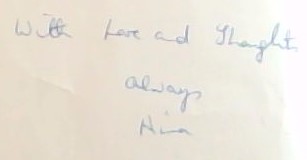 With Love and Thoughts
always
Nina